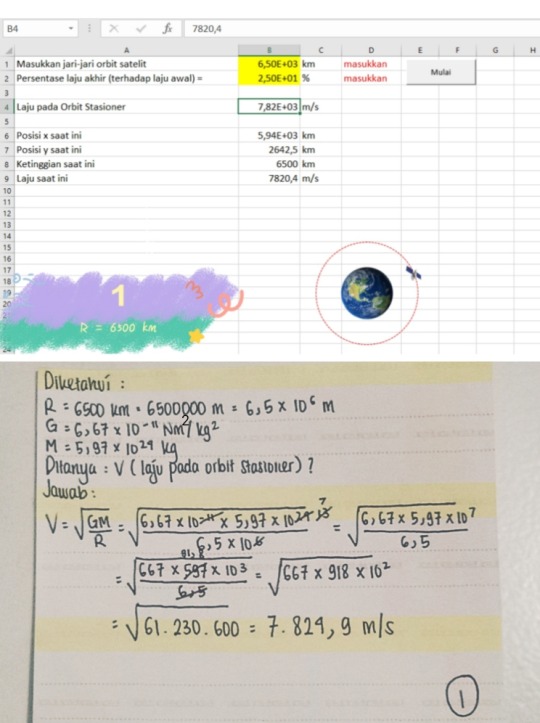 B4 fx 7820,4
A B C D E F G H
1 Masukkan jari-jari orbit satelit 6,50E+03 km masukkan
Mulai
2 Persentase laju akhir (terhadap laju awal) = 2,50E+01 % masukkan
3
4 Laju pada Orbit Stasioner 7,82E+03 m/s
5
6 Posisi x saat ini 5,94E+03 km
7 Posisi y saat ini 2642,5 km
8 Ketinggian saat ini 6500 km
9 Laju saat ini 7820,4 m/s
10
11
12
13
14
15
16
17
18
19
20
1
R = 6500 km
Diketahui :
R = 6500 km = 6500000 m = 6,5 x 10⁶ m
G = 6,67 x 10⁻¹¹ Nm²/kg²
M = 5,97 x 10²⁴ kg
Ditanya : V (laju pada orbit stasioner) ?
Jawab :
V = √(GM/R) = √(6,67 x 10⁻¹¹ x 5,97 x 10²⁴ ¹³ ⁷ / 6,5 x 10⁶) = √(6,67 x 5,97 x 10⁷ / 6,5)
= √(667 x 597 91,8 x 10³ / 6,5) = √(667 x 918 x 10²)
= √61.230.600 = 7.824,9 m/s
1